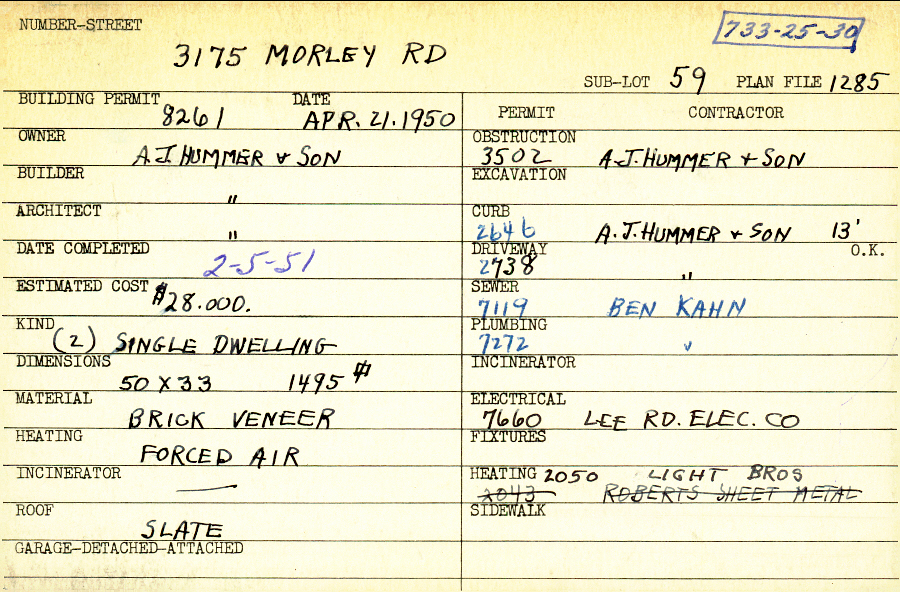 NUMBER-STREET
733-25-30
3175 MORLEY RD
SUB-LOT 59 PLAN FILE 1285
BUILDING PERMIT DATE
8261 APR. 21. 1950
OWNER
A.J. HUMMER & SON
BUILDER
"
ARCHITECT
"
DATE COMPLETED
2-5-51
ESTIMATED COST $28.000.
KIND
(2) SINGLE DWELLING
DIMENSIONS
50 X 33 1495 #
MATERIAL
BRICK VENEER
HEATING
FORCED AIR
INCINERATOR
—
ROOF
SLATE
GARAGE-DETACHED-ATTACHED
PERMIT CONTRACTOR
OBSTRUCTION
3502 A.J. HUMMER & SON
EXCAVATION
CURB
2646 A.J. HUMMER & SON 13'
DRIVEWAY O.K.
2738 "
SEWER
7119 BEN KAHN
PLUMBING
7272 "
INCINERATOR
ELECTRICAL
7660 LEE RD. ELEC. CO
FIXTURES
HEATING 2050 LIGHT BROS
2043 ROBERTS SHEET METAL
SIDEWALK